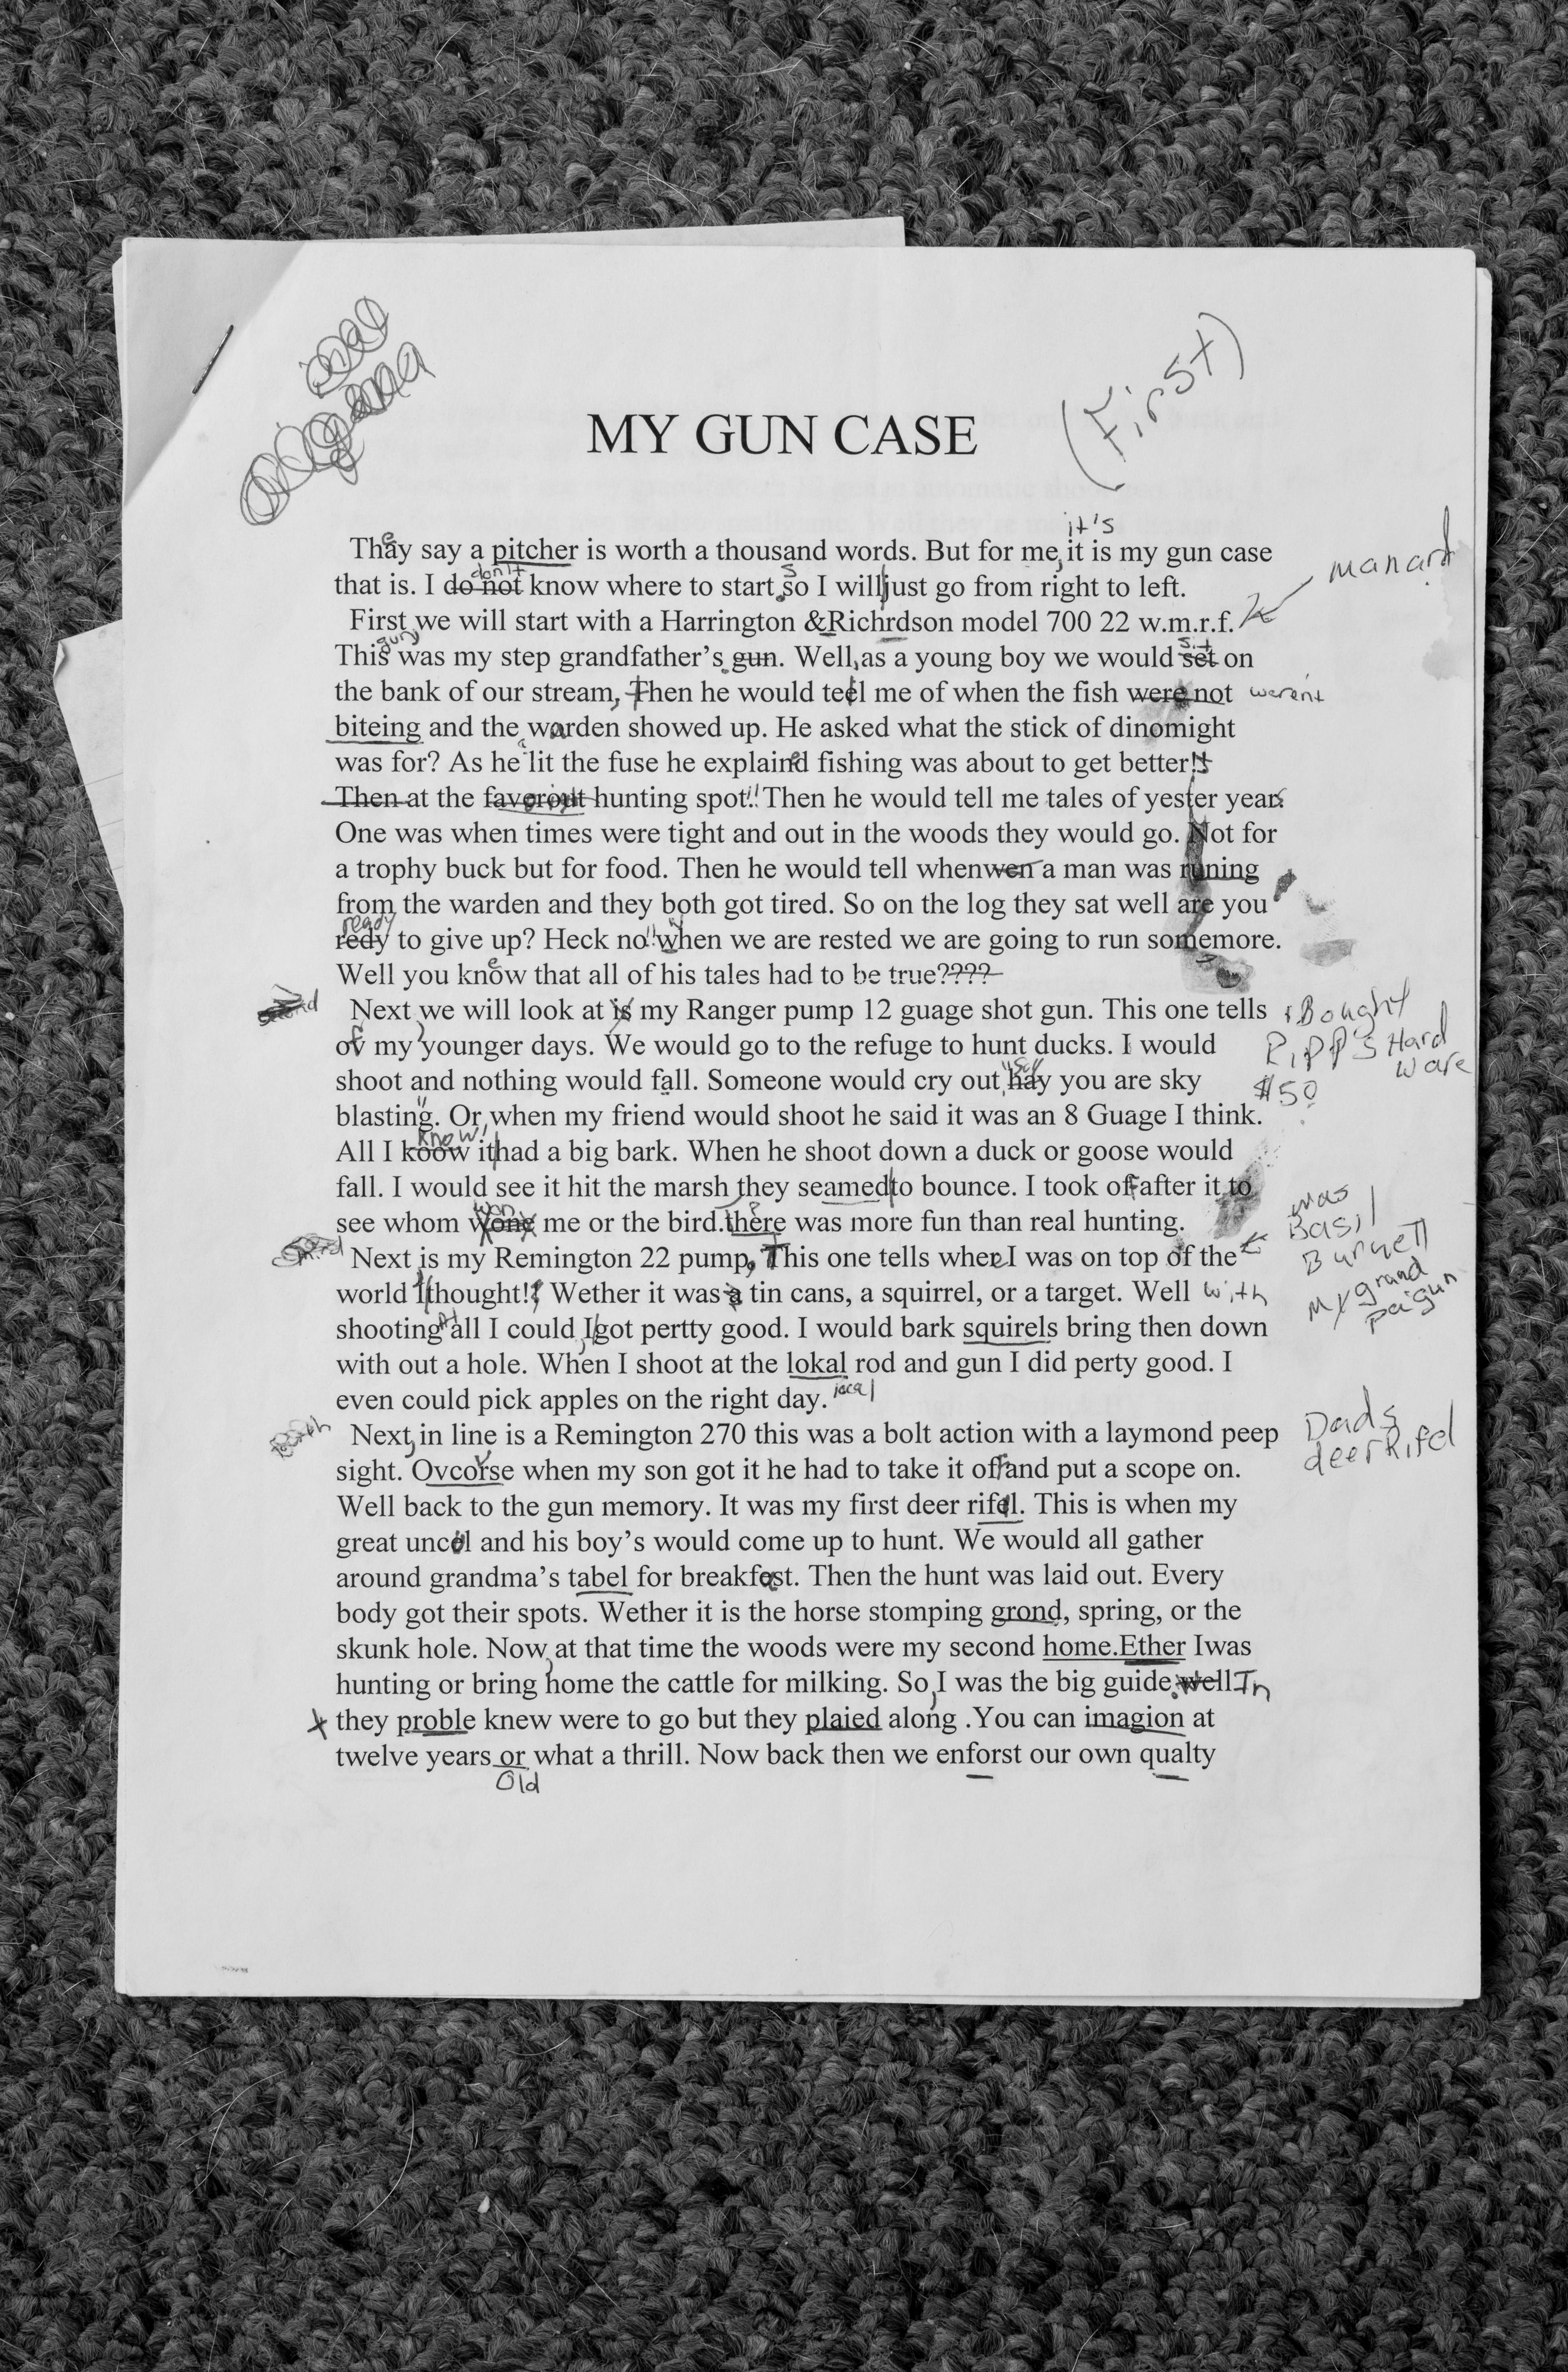 original
(First)
MY GUN CASE
it's
Thay say a pitcher is worth a thousand words. But for me, it is my gun case
manard
don't s
that is. I do not know where to start. so I will just go from right to left.
First, we will start with a Harrington &Richrdson model 700 22 w.m.r.f.
gun sit
This was my step grandfather's gun. Well, as a young boy we would set on
the bank of our stream, Then he would tecl me of when the fish were not werent
biteing and the warden showed up. He asked what the stick of dinomight
was for? As he lit the fuse he explained fishing was about to get better!!
Then at the faverout hunting spot.!! Then he would tell me tales of yester years
One was when times were tight and out in the woods they would go. Not for
a trophy buck but for food. Then he would tell whenwen a man was runing
from the warden and they both got tired. So on the log they sat well are you
ready
redy to give up? Heck no!" when we are rested we are going to run somemore.
Well you knew that all of his tales had to be true????
Next, we will look at is my Ranger pump 12 guage shot gun. This one tells
Bought
of my younger days. We would go to the refuge to hunt ducks. I would
Ripp's Hard
ware
shoot and nothing would fall. Someone would cry out, hay you are sky
$50
blasting". Or, when my friend would shoot he said it was an 8 Guage I think.
know
All I koow it had a big bark. When he shoot down a duck or goose would
fall. I would see it hit the marsh they seamed to bounce. I took off after it to
won
see whom wone me or the bird. there was more fun than real hunting.
was
Basil
Burnett
My grand
pa gun
Next is my Remington 22 pump, This one tells when I was on top of the
world I thought!! Wether it was a tin cans, a squirrel, or a target. Well with
shooting at all I could, I got pertty good. I would bark squirels bring then down
with out a hole. When I shoot at the lokal rod and gun I did perty good. I
even could pick apples on the right day. local
Next, in line is a Remington 270 this was a bolt action with a laymond peep
Dads
deer Rifel
sight. Ovcorse when my son got it he had to take it off and put a scope on.
Well back to the gun memory. It was my first deer rifel. This is when my
great uncel and his boy's would come up to hunt. We would all gather
around grandma's tabel for breakfast. Then the hunt was laid out. Every
body got their spots. Wether it is the horse stomping grond, spring, or the
skunk hole. Now, at that time the woods were my second home.Ether Iwas
hunting or bring home the cattle for milking. So, I was the big guide. well In
they proble knew were to go but they plaied along .You can imagion at
twelve years or what a thrill. Now back then we enforst our own qualty
Old